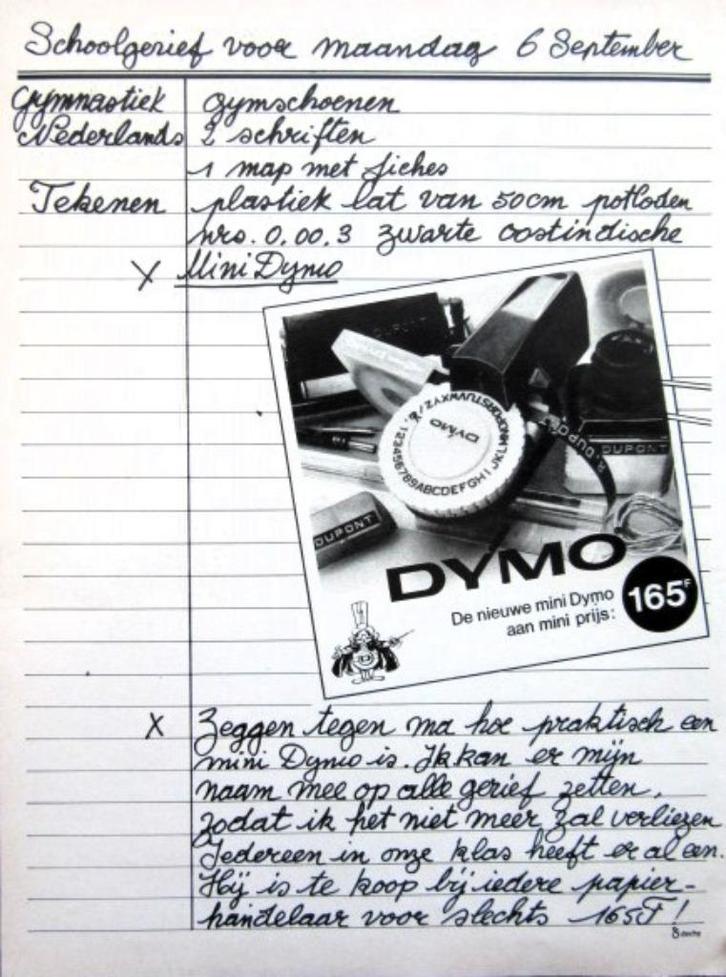 Schoolgerief voor maandag 6 September
Gymnastiek gymschoenen
Nederlands 2 schriften
1 map met fiches
Tekenen plastiek lat van 50cm potloden
nrs. 0,00,3 zwarte oostindische
X Mini Dymo
DUPONT
&ZYXWVUTSRQPONMLKJIHGFEDCBA987654321
DYMO
R. DUPONT
DUPONT
DUPONT
DYMO
De nieuwe mini Dymo
aan mini prijs:
165F
X Zeggen tegen ma hoe praktisch een
mini Dymo is. Ik kan er mijn
naam mee op alle gerief zetten,
zodat ik het niet meer zal verliezen
Iedereen in onze klas heeft er al een.
Hij is te koop bij iedere papier-
handelaar voor slechts 165F!